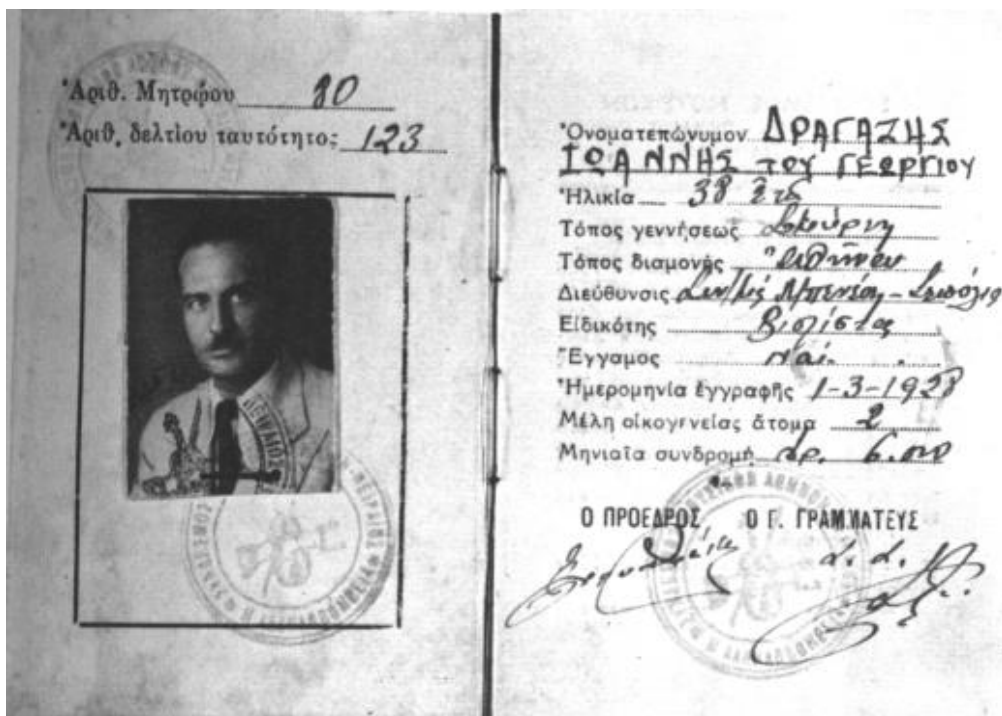 Ἀριθ. Μητρῴου 80
Ἀριθ. δελτίου ταυτότητος 123
Ὀνοματεπώνυμον ΔΡΑΓΑΤΗΣ
ΙΩΑΝΝΗΣ ΤΟΥ ΓΕΩΡΓΙΟΥ
Ἡλικία 38 ἐτῶν
Τόπος γεννήσεως Σμύρνη
Τόπος διαμονῆς Ἀθῆναι
Διεύθυνσις
Εἰδικότης Βιολίστας
Ἔγγαμος Ναί.
Ἡμερομηνία ἐγγραφῆς 1-3-1928
Μέλη οἰκογενείας ἄτομα 2
Μηνιαῖα συνδρομή δρ. 6.000
Ο ΠΡΟΕΔΡΟΣ Ο Γ. ΓΡΑΜΜΑΤΕΥΣ